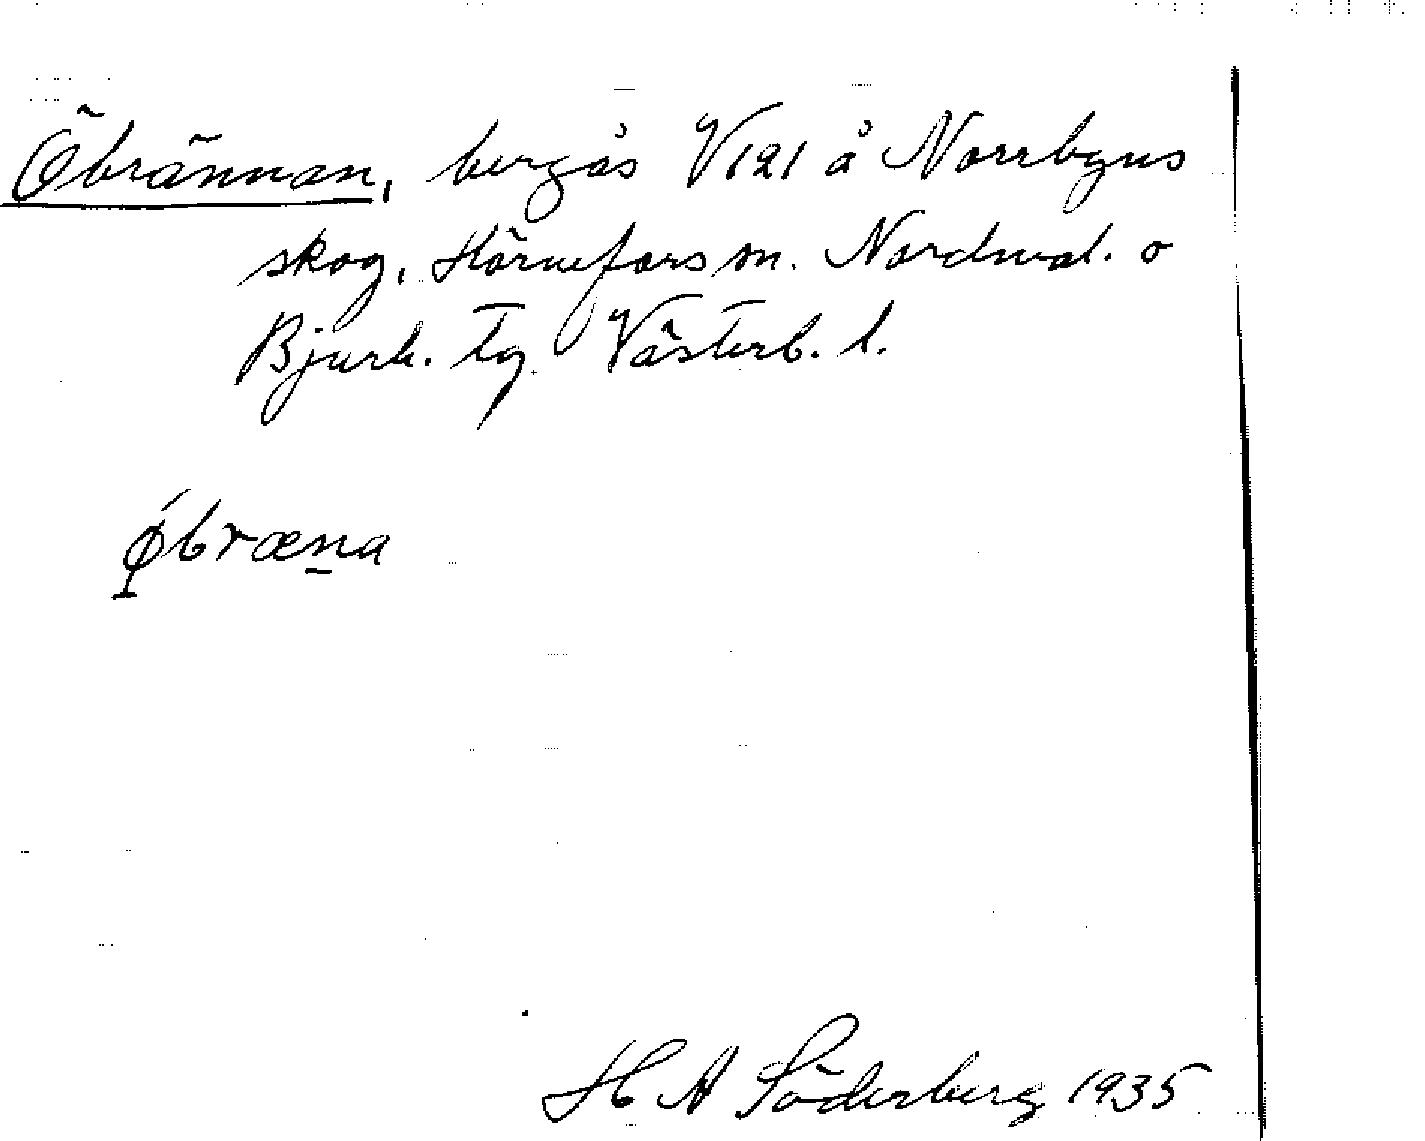 Öbrännan, bergås V121 å Norrbyns
skog, Hörnefors sn. Nordmal. o
Bjurh. tg Västerb. l.
øbræna
H A Söderberg 1935